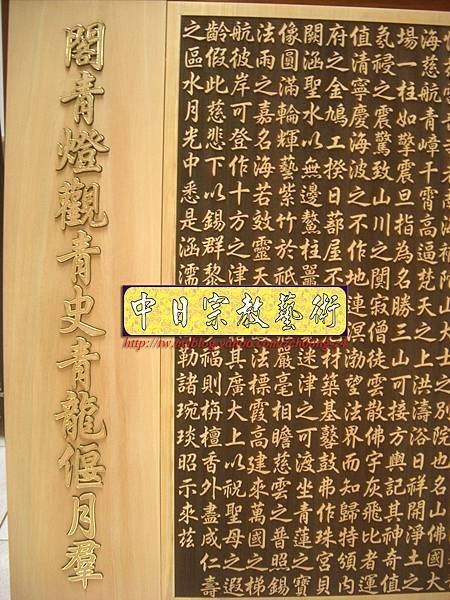 山大士之別院也名山佛國
海慈航青嶂千霄高逼梵天之上洪濤浴日祥開淨土之
場一柱如擎震旦指為名勝三山可接方輿記其神奇值
氛祲之震驚致山川之闃寂僧徒雲散佛宇灰飛比者運
值清寧慶海波之不作地連溟渤望法界而知歸特頒內
府之金鳩工揆日蔀屋不材築基鼓弗作珠宮
闕涵聖水以無邊鰲柱迷津之可渡坐青蓮之寶
像圓滿輪輝藝紫竹於祇嚴毫相瞻慈雲之普照錫
法雨之嘉名海若效靈天法標霞高建來萬國之梯
航彼岸可登作十方之津其廣大上以祝聖母之遐
齡假此慈悲下以錫群黎福則栴檀香外盡成仁壽
之區水月光中悉是涵濡勒諸琬琰昭示來茲
閣青燈觀青史青龍偃月羣
中日宗教藝術